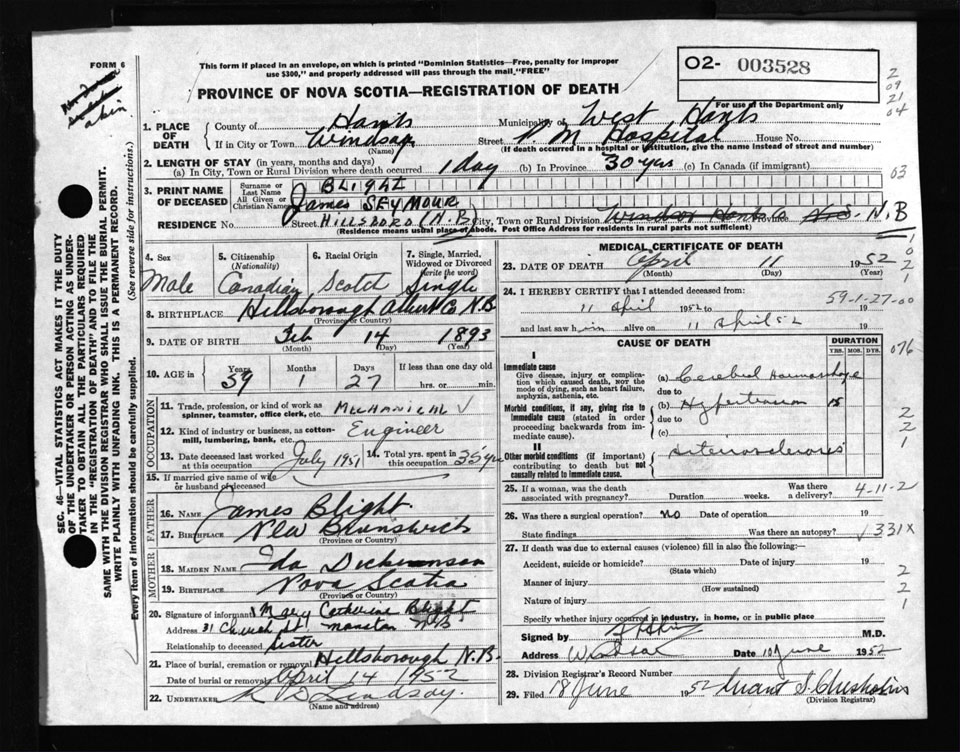 FORM 6
This form if placed in an envelope, on which is printed "Dominion Statistics—Free, penalty for improper
use $300," and properly addressed will pass through the mail "FREE"
O2- 003528
For use of the Department only
PROVINCE OF NOVA SCOTIA—REGISTRATION OF DEATH
akin
2
09
21
04
1. PLACE OF DEATH
County of Hants Municipality of West Hants
If in City or Town Windsor (Name) Street P. M Hospital House No.
(If death occurred in a hospital or institution, give the name instead of street and number)
2. LENGTH OF STAY (in years, months and days)
(a) In City, Town or Rural Division where death occurred 1 day (b) In Province 30 yrs (c) In Canada (if immigrant)
03
3. PRINT NAME OF DECEASED
Surname or Last Name BLIGHT
All Given or Christian Names James SEYMOUR
RESIDENCE No. Street HILLSBORO (N.B) City, Town or Rural Division Windsor Hants N.S. N.B
(Residence means usual place of abode. Post Office Address for residents in rural parts not sufficient)
4. Sex Male
5. Citizenship (Nationality) Canadian
6. Racial Origin Scotch
7. Single, Married, Widowed or Divorced (write the word) Single
8. BIRTHPLACE Hillsborough Albert Co N.B
(Province or Country)
9. DATE OF BIRTH Feb 14 1893
(Month) (Day) (Year)
10. AGE Years 59 Months 1 Days 27 If less than one day old hrs. or min.
OCCUPATION
11. Trade, profession, or kind of work as spinner, teamster, office clerk, etc. MECHANICAL √
12. Kind of industry or business, as cotton-mill, lumbering, bank, etc. Engineer
13. Date deceased last worked at this occupation July 1951 14. Total yrs. spent in this occupation 35 yrs
15. If married give name of wife or husband of deceased
FATHER
16. NAME James Blight
17. BIRTHPLACE New Brunswick
(Province or Country)
MOTHER
18. MAIDEN NAME Ida
19. BIRTHPLACE Nova Scotia
(Province or Country)
20. Signature of informant Mary Catherine Blight
Address 31 Church St Moncton N.B
Relationship to deceased Sister
21. Place of burial, cremation or removal Hillsborough N.B.
Date of burial or removal April 14 1952
22. UNDERTAKER Lindsay.
(Name and address)
MEDICAL CERTIFICATE OF DEATH
23. DATE OF DEATH April 11 1952
(Month) (Day) (Year)
24. I HEREBY CERTIFY that I attended deceased from:
59-1-27-00
11 April 1952 to 19
and last saw him alive on 11 April 52 19
CAUSE OF DEATH
DURATION
YRS. MOS. DYS.
076
I
Immediate cause
Give disease, injury or complication which caused death, not the mode of dying, such as heart failure, asphyxia, asthenia, etc.
(a) Cerebral Haemorrhage
due to
Morbid conditions, if any, giving rise to immediate cause (stated in order proceeding backwards from immediate cause).
(b) Hypertension 15
due to
(c)
II
Other morbid conditions (if important) contributing to death but not causally related to immediate cause.
Arteriosclerosis
2
2
1
25. If a woman, was the death associated with pregnancy? Duration weeks. Was there a delivery? 4-11-2
26. Was there a surgical operation? NO Date of operation 19
State findings Was there an autopsy? √ 331X
27. If death was due to external causes (violence) fill in also the following:—
Accident, suicide or homicide? Date of injury 19
(State which)
Manner of injury
(How sustained)
Nature of injury
2
2
1
Specify whether injury occurred in industry, in home, or in public place
Signed by M.D.
Address Windsor Date 10 June 1952
28. Division Registrar's Record Number
29. Filed 18 June 1952
(Division Registrar)
SEC. 46—VITAL STATISTICS ACT MAKES IT THE DUTY
OF THE UNDERTAKER OR PERSON ACTING AS UNDER-
TAKER TO OBTAIN ALL THE PARTICULARS REQUIRED
IN THE "REGISTRATION OF DEATH" AND TO FILE THE
SAME WITH THE DIVISION REGISTRAR WHO SHALL ISSUE THE BURIAL PERMIT.
WRITE PLAINLY WITH UNFADING INK. THIS IS A PERMANENT RECORD.
Every item of information should be carefully supplied. (See reverse side for instructions.)